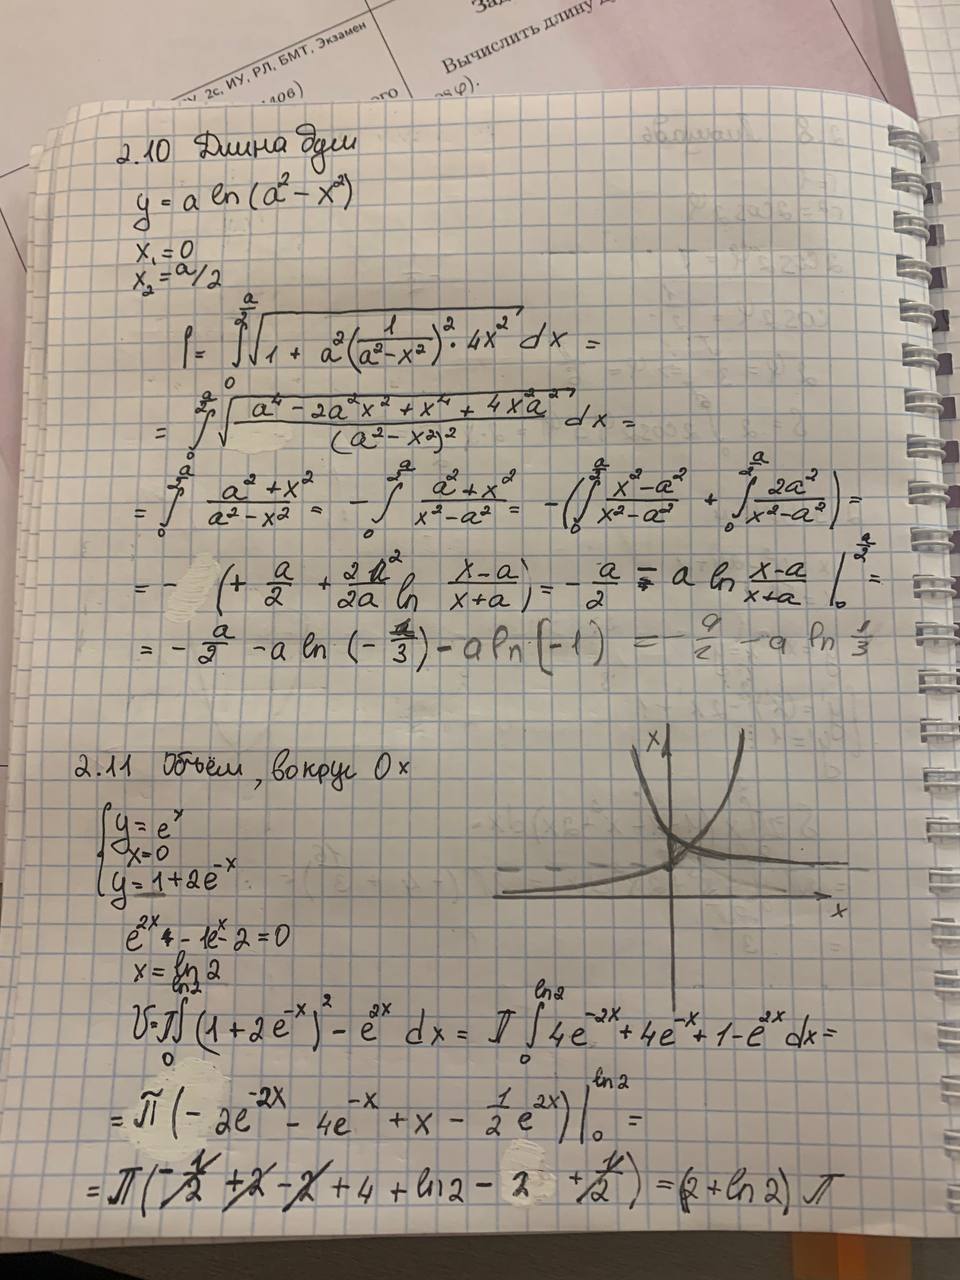 У, 2с, ИУ, РЛ, БМТ, Экзамен
Зад
Вычислить длину д
ого
φ).
2.10 Длина дуги
y = a ln(a² − x²)
x₁ = 0
x₂ = a/2
l = ∫₀^{a/2} √(1 + a²(1/(a² − x²))² · 4x²) dx =
= ∫₀^{a/2} √((a⁴ − 2a²x² + x⁴ + 4x²a²)/(a² − x²)²) dx =
= ∫₀^{a/2} (a² + x²)/(a² − x²) = − ∫₀^{a/2} (a² + x²)/(x² − a²) = −(∫₀^{a/2} (x² − a²)/(x² − a²) + ∫₀^{a/2} 2a²/(x² − a²)) =
= − (+ a/2 + 2a²/2a ln (x − a)/(x + a)) = − a/2 − a ln (x − a)/(x + a) |₀^{a/2} =
= − a/2 − a ln (− 1/3) − a ln (−1) = − a/2 − a ln 1/3
2.11 Объём, вокруг Ox
{ y = eˣ
x = 0
y = 1 + 2e⁻ˣ
x
x
e²ˣ − 1eˣ − 2 = 0
x = ln 2
V = π ∫₀^{ln2} (1 + 2e⁻ˣ)² − e²ˣ dx = π ∫₀^{ln2} 4e⁻²ˣ + 4e⁻ˣ + 1 − e²ˣ dx =
= π (− 2e⁻²ˣ − 4e⁻ˣ + x − 1/2 e²ˣ) |₀^{ln2} =
= π (− 1/2 + 2 − 2 + 4 + ln 2 − 2 + 1/2) = (2 + ln 2) π